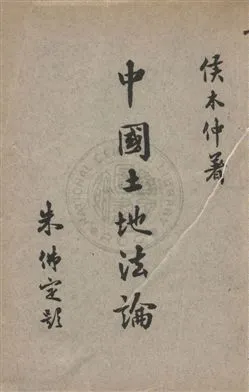 侯木仲著
中國土地法論
朱佛定題